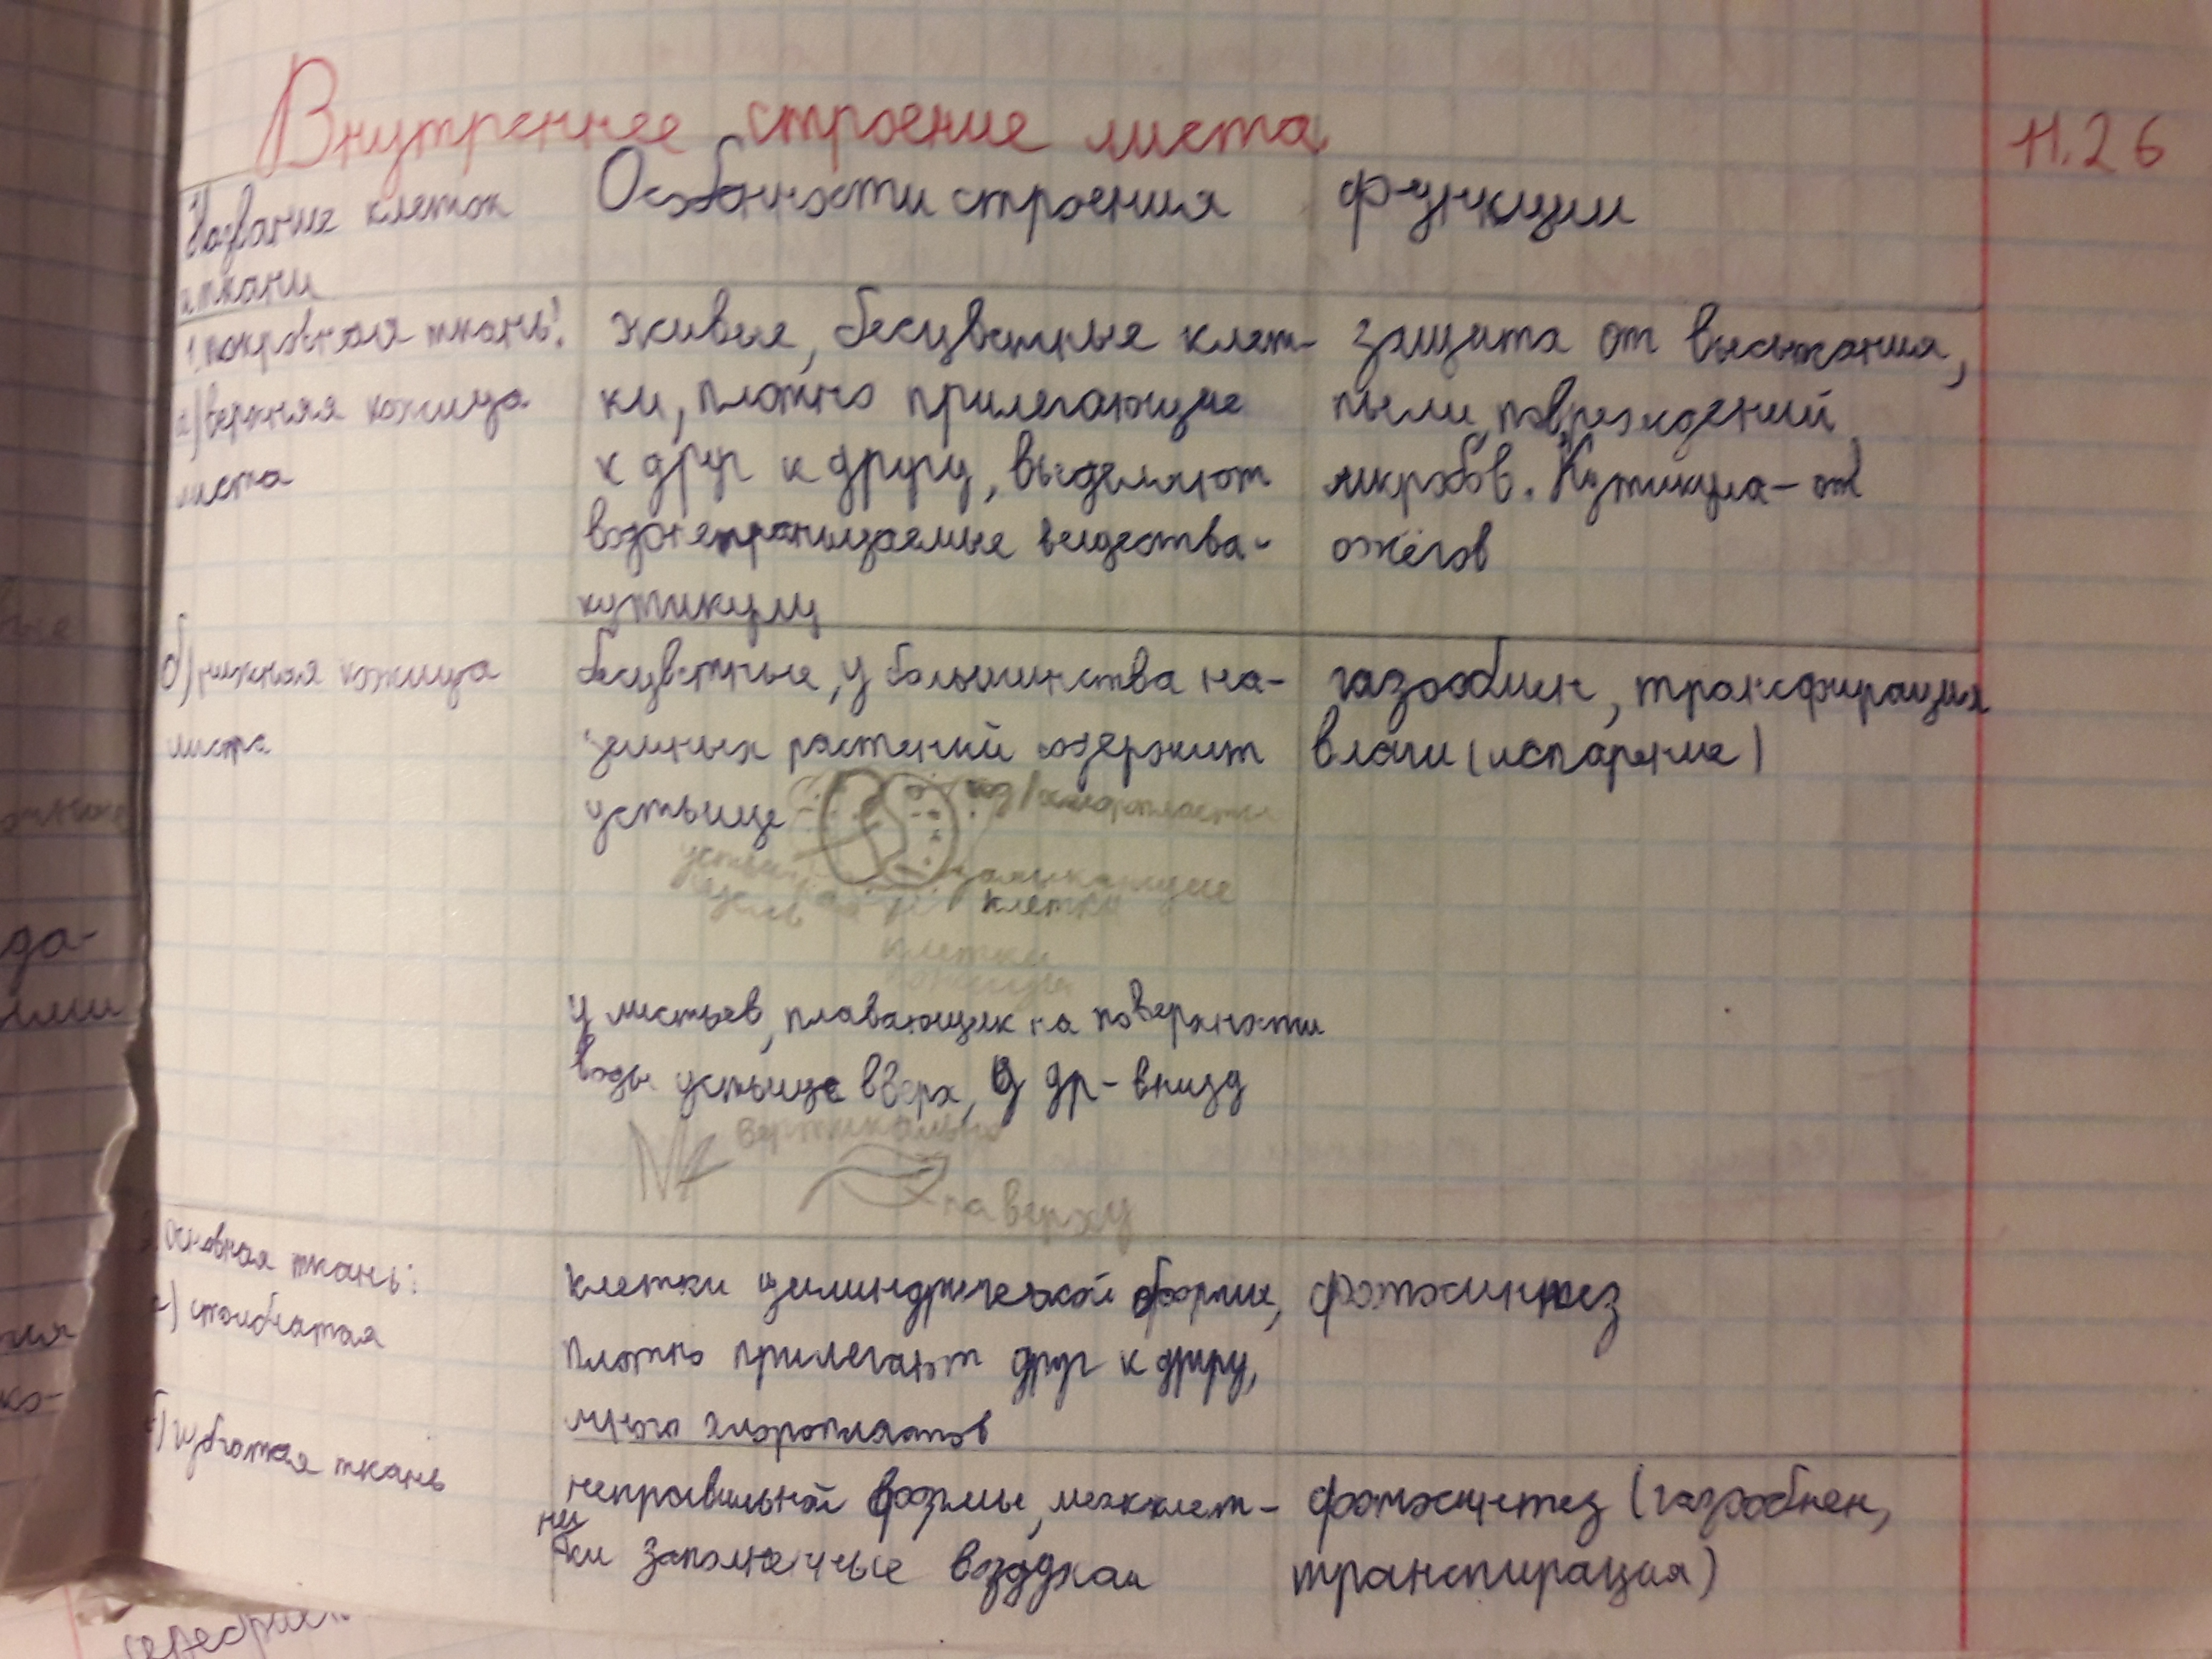 Внутреннее строение листа
11.26
Название клеток
и ткани
Особенности строения
Функции
1. покровная ткань:
а) верхняя кожица
листа
живые, бесцветные клет-
ки, плотно прилегающие
к друг к другу, выделяют
водонепроницаемые вещества-
кутикулу
защита от высыхания,
пыли, повреждений,
микробов. Кутикула - от
ожёгов
б) нижная кожица
листа
бесцветные, у большинства на-
земных растений содержит
устьице
хлоропласты
замыкающие
клетки
щель
клетки
кожицы
газообмен, трансфирация
влаги (испарение)
у листьев, плавающих на поверхности
воды устьице вверх, у др - внизу
вертикально
наверху
Основная ткань:
а) столбчатая
клетки цилиндрической формы,
плотно прилегают друг к другу,
много хлоропластов
фотосинтез
б) губчатая ткань
неправильной формы, межклет-
ни
ки заполненные воздухом
фотосинтез (газообмен,
транспирация)